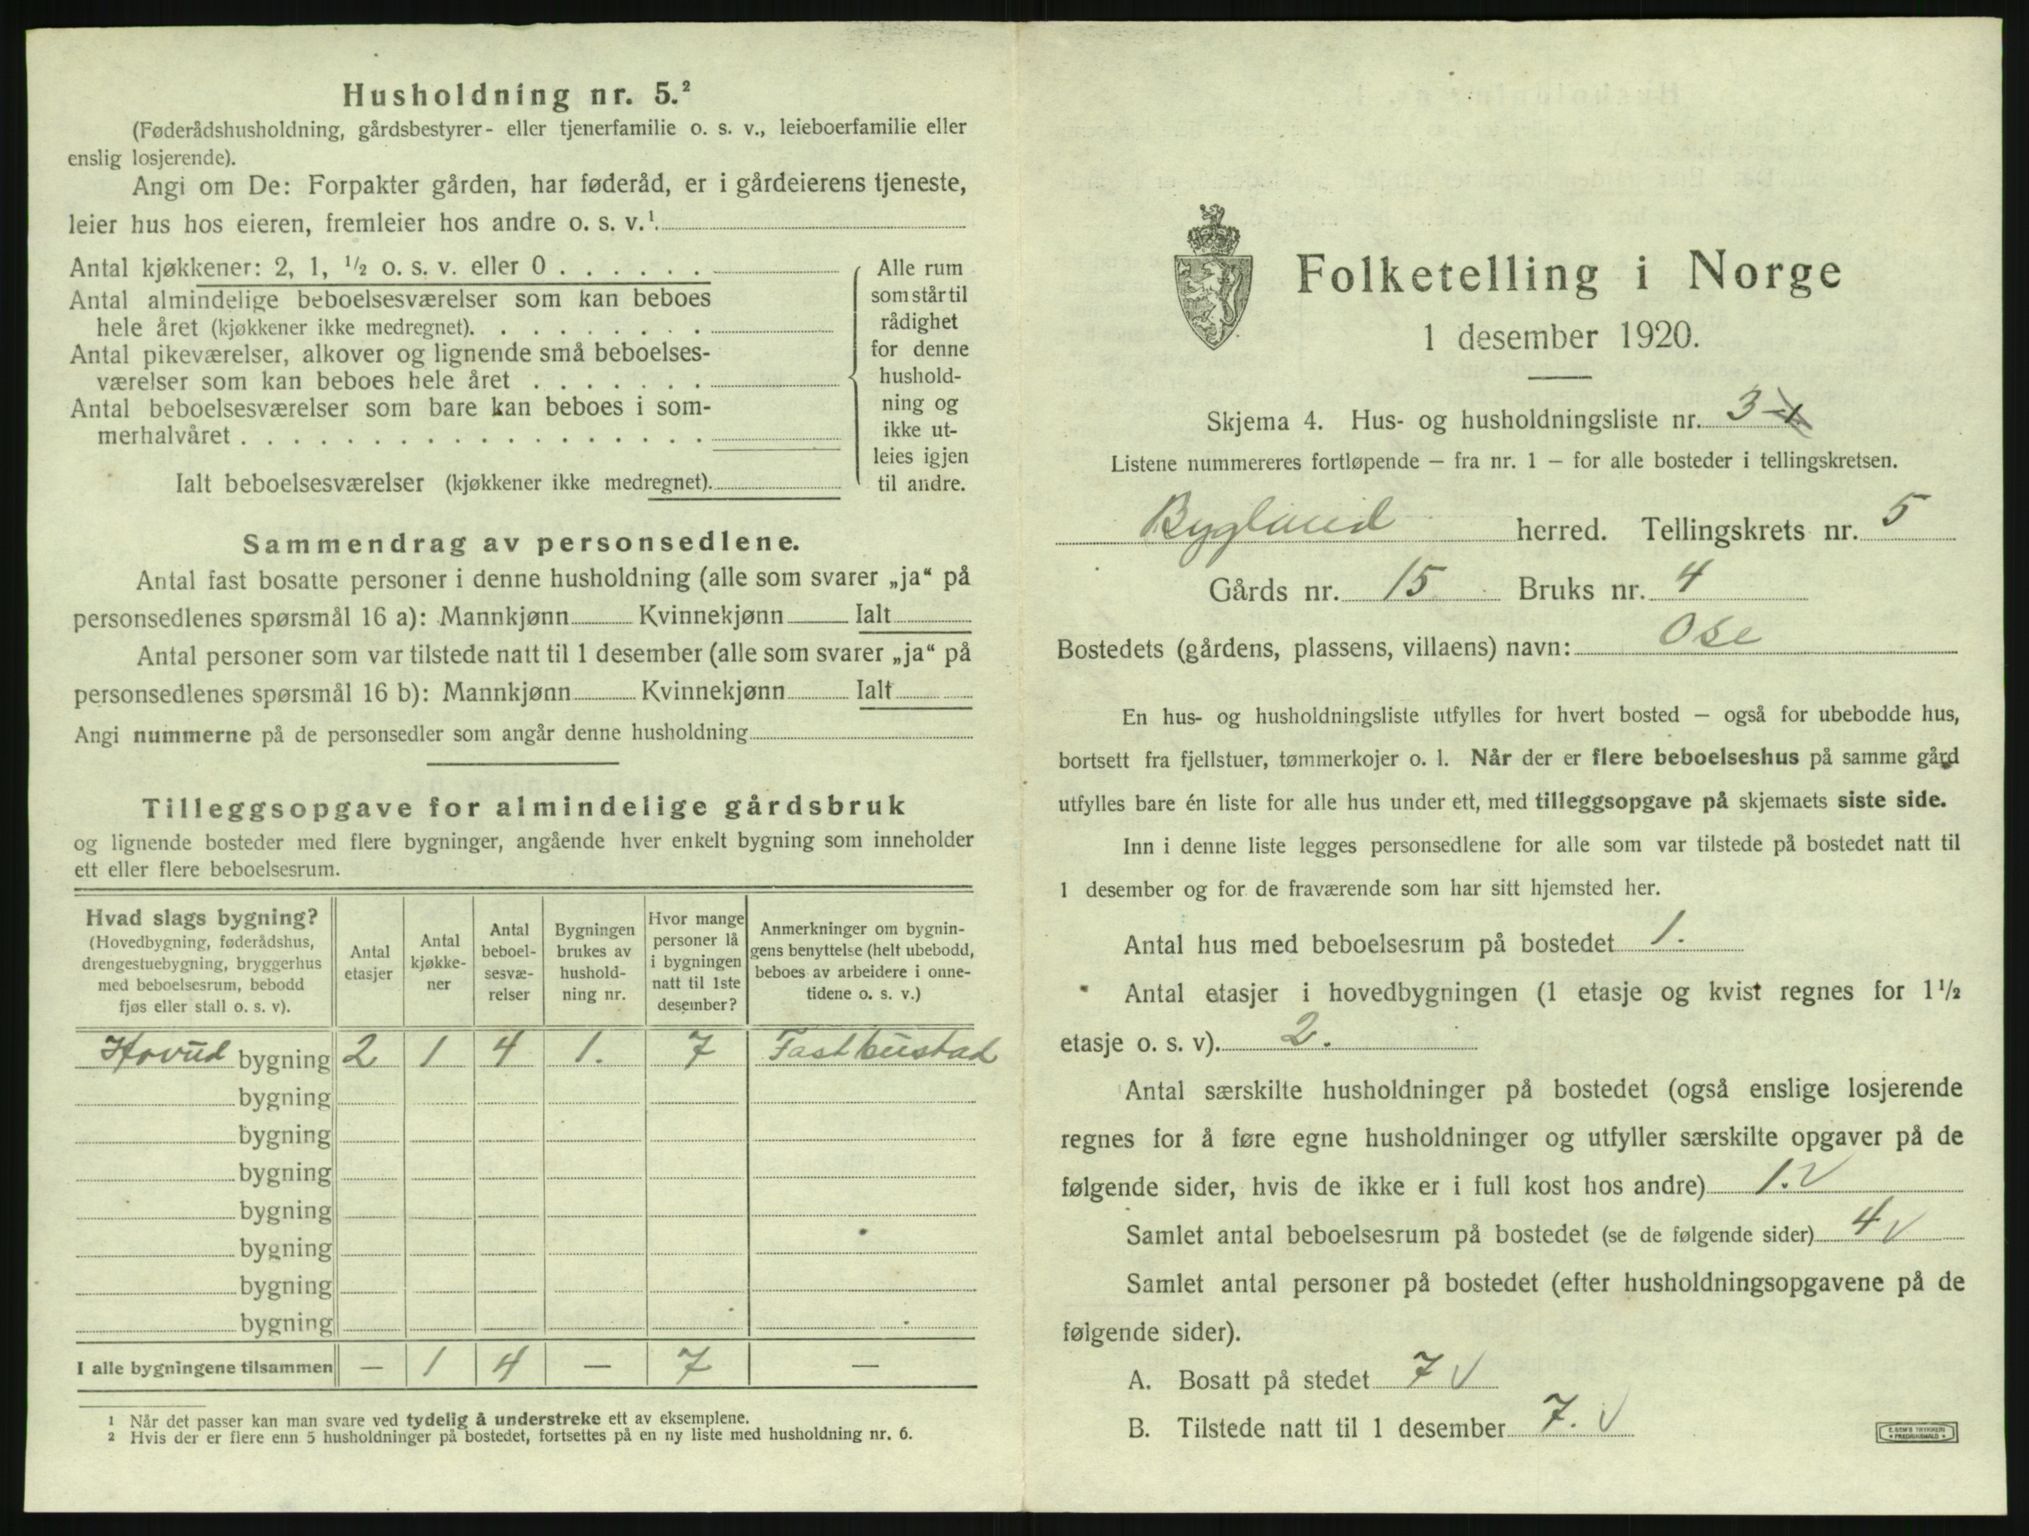 Husholdning nr. 5.²
(Føderådshusholdning, gårdsbestyrer- eller tjenerfamilie o. s. v., leieboerfamilie eller
enslig losjerende).
Angi om De: Forpakter gården, har føderåd, er i gårdeierens tjeneste,
leier hus hos eieren, fremleier hos andre o. s. v.¹
Antal kjøkkener: 2, 1, ½ o. s. v. eller 0 . . . . . .
Antal almindelige beboelsesværelser som kan beboes
hele året (kjøkkener ikke medregnet). . . . . . . . .
Antal pikeværelser, alkover og lignende små beboelses-
værelser som kan beboes hele året . . . . . . .
Antal beboelsesværelser som bare kan beboes i som-
merhalvåret . . . . . . . . . . . . . . . . . .
Ialt beboelsesværelser (kjøkkener ikke medregnet).
Alle rum
som står til
rådighet
for denne
hushold-
ning og
ikke ut-
leies igjen
til andre.
Sammendrag av personsedlene.
Antal fast bosatte personer i denne husholdning (alle som svarer „ja“ på
personsedlenes spørsmål 16 a): Mannkjønn Kvinnekjønn Ialt
Antal personer som var tilstede natt til 1 desember (alle som svarer „ja“ på
personsedlenes spørsmål 16 b): Mannkjønn Kvinnekjønn Ialt
Angi nummerne på de personsedler som angår denne husholdning
Tilleggsopgave for almindelige gårdsbruk
og lignende bosteder med flere bygninger, angående hver enkelt bygning som inneholder
ett eller flere beboelsesrum.
Hvad slags bygning?
(Hovedbygning, føderådshus,
drengestuebygning, bryggerhus
med beboelsesrum, bebodd
fjøs eller stall o. s. v).
Antal
etasjer
Antal
kjøkke-
ner
Antal
beboel-
sesvæ-
relser
Bygningen
brukes av
hushold-
ning nr.
Hvor mange
personer lå
i bygningen
natt til 1ste
desember?
Anmerkninger om bygnin-
gens benyttelse (helt ubebodd,
beboes av arbeidere i onne-
tidene o. s. v.)
Hovud bygning 2 1 4 1. 7 Fast bustad
bygning
bygning
bygning
bygning
bygning
bygning
bygning
I alle bygningene tilsammen — 1 4 — 7 —
1 Når det passer kan man svare ved tydelig å understreke ett av eksemplene.
2 Hvis der er flere enn 5 husholdninger på bostedet, fortsettes på en ny liste med husholdning nr. 6.
Folketelling i Norge
1 desember 1920.
Skjema 4. Hus- og husholdningsliste nr. 3
Listene nummereres fortløpende – fra nr. 1 – for alle bosteder i tellingskretsen.
Bygland herred. Tellingskrets nr. 5
Gårds nr. 15 Bruks nr. 4
Bostedets (gårdens, plassens, villaens) navn: Ose
En hus- og husholdningsliste utfylles for hvert bosted – også for ubebodde hus,
bortsett fra fjellstuer, tømmerkojer o. l. Når der er flere beboelseshus på samme gård
utfylles bare én liste for alle hus under ett, med tilleggsopgave på skjemaets siste side.
Inn i denne liste legges personsedlene for alle som var tilstede på bostedet natt til
1 desember og for de fraværende som har sitt hjemsted her.
Antal hus med beboelsesrum på bostedet 1.
Antal etasjer i hovedbygningen (1 etasje og kvist regnes for 1½
etasje o. s. v). 2.
Antal særskilte husholdninger på bostedet (også enslige losjerende
regnes for å føre egne husholdninger og utfyller særskilte opgaver på de
følgende sider, hvis de ikke er i full kost hos andre) 1. √
Samlet antal beboelsesrum på bostedet (se de følgende sider) 4 √
Samlet antal personer på bostedet (efter husholdningsopgavene på de
følgende sider).
A. Bosatt på stedet 7 √
B. Tilstede natt til 1 desember 7. √